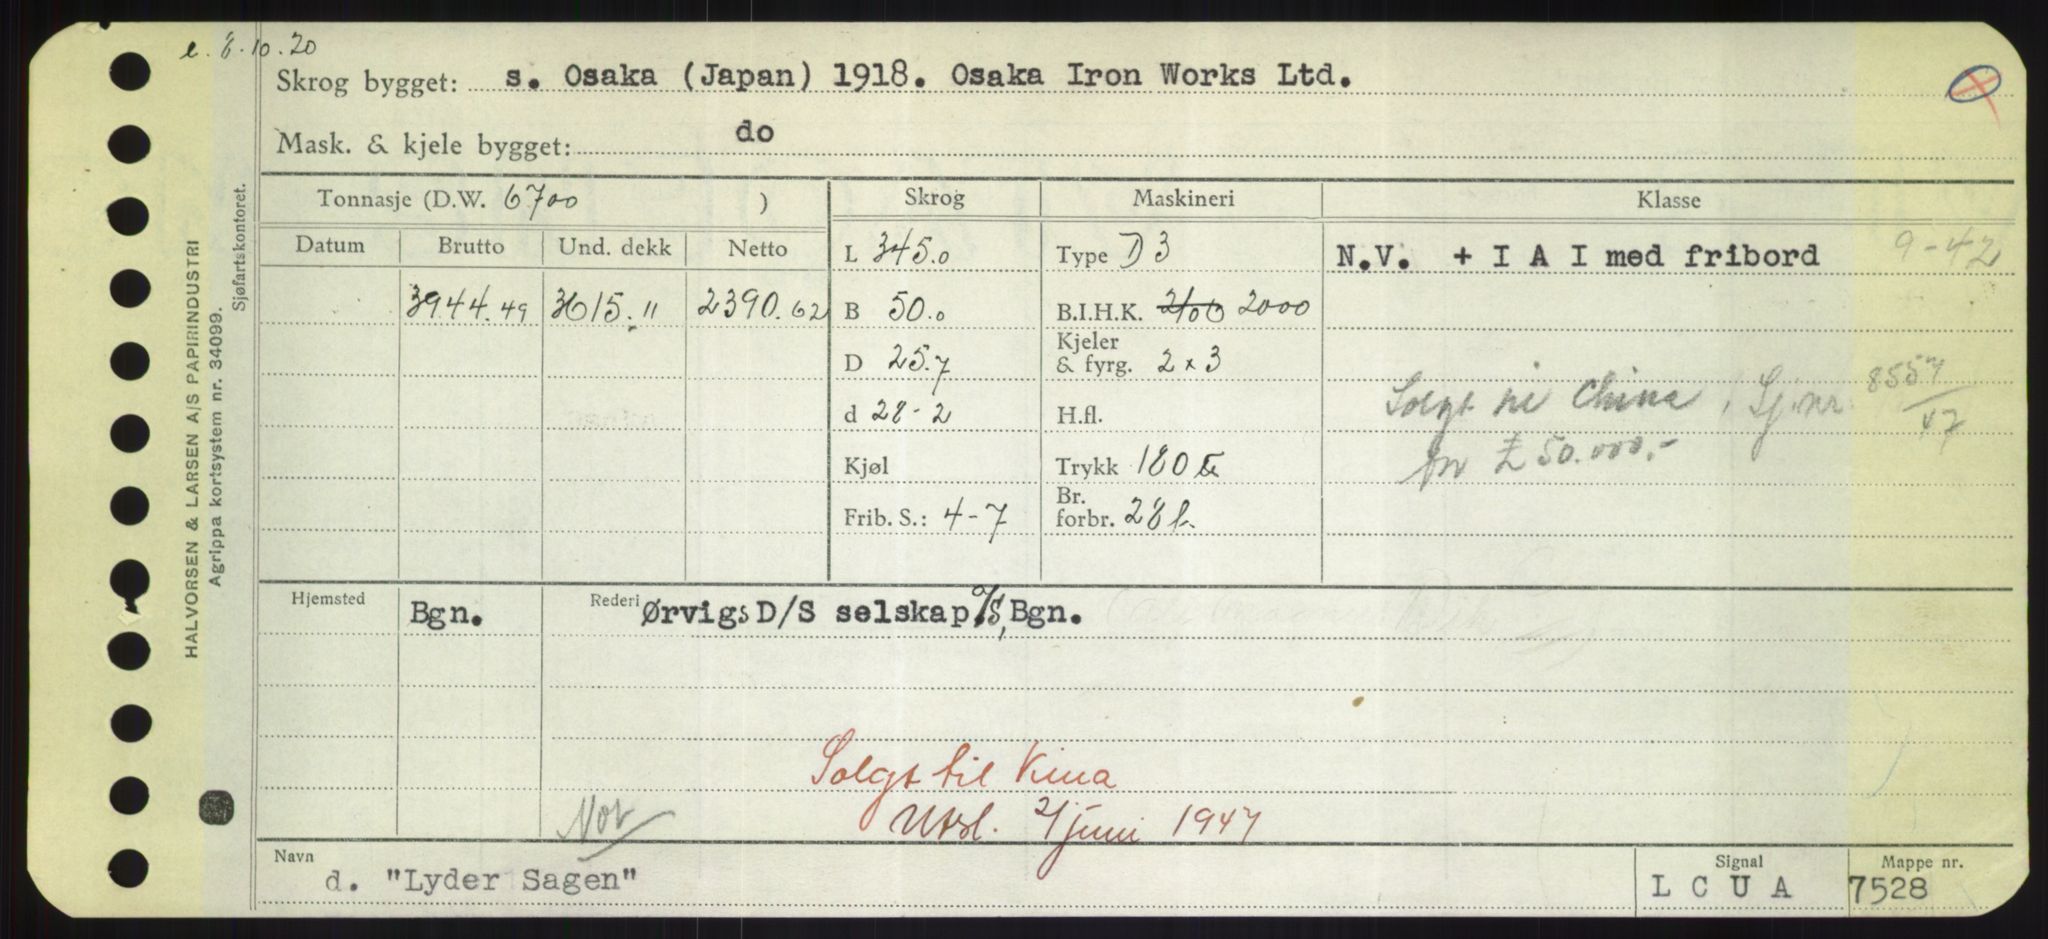 e. 8.10.20
Skrog bygget: s. Osaka (Japan) 1918. Osaka Iron Works Ltd.
Mask. & kjele bygget: do
Tonnasje (D.W. 6700 ) Skrog Maskineri Klasse
Datum Brutto Und. dekk Netto L 345.0 Type D 3 N.V. + I A I med fribord 9-42
3944.49 3615.11 2390.62 B 50.0 B.I.H.K. 2100 2000
D 25.7 Kjeler & fyrg. 2 x 3
d 28-2 H.fl. Solgt til China, Sj.nr. 8557/47
Kjøl Trykk 180 for £ 50.000.-
Frib. S.: 4-7 Br. forbr. 28 t.
Hjemsted Bgn. Rederi Ørvigs D/S selskap A/S, Bgn.
Solgt til Kina
Utsl. 2/juni 1947
Nor
Navn Signal Mappe nr.
d. "Lyder Sagen" L C U A 7528
HALVORSEN & LARSEN A/S PAPIRINDUSTRI
Agrippa kortsystem nr. 34099.
Sjøfartskontoret.